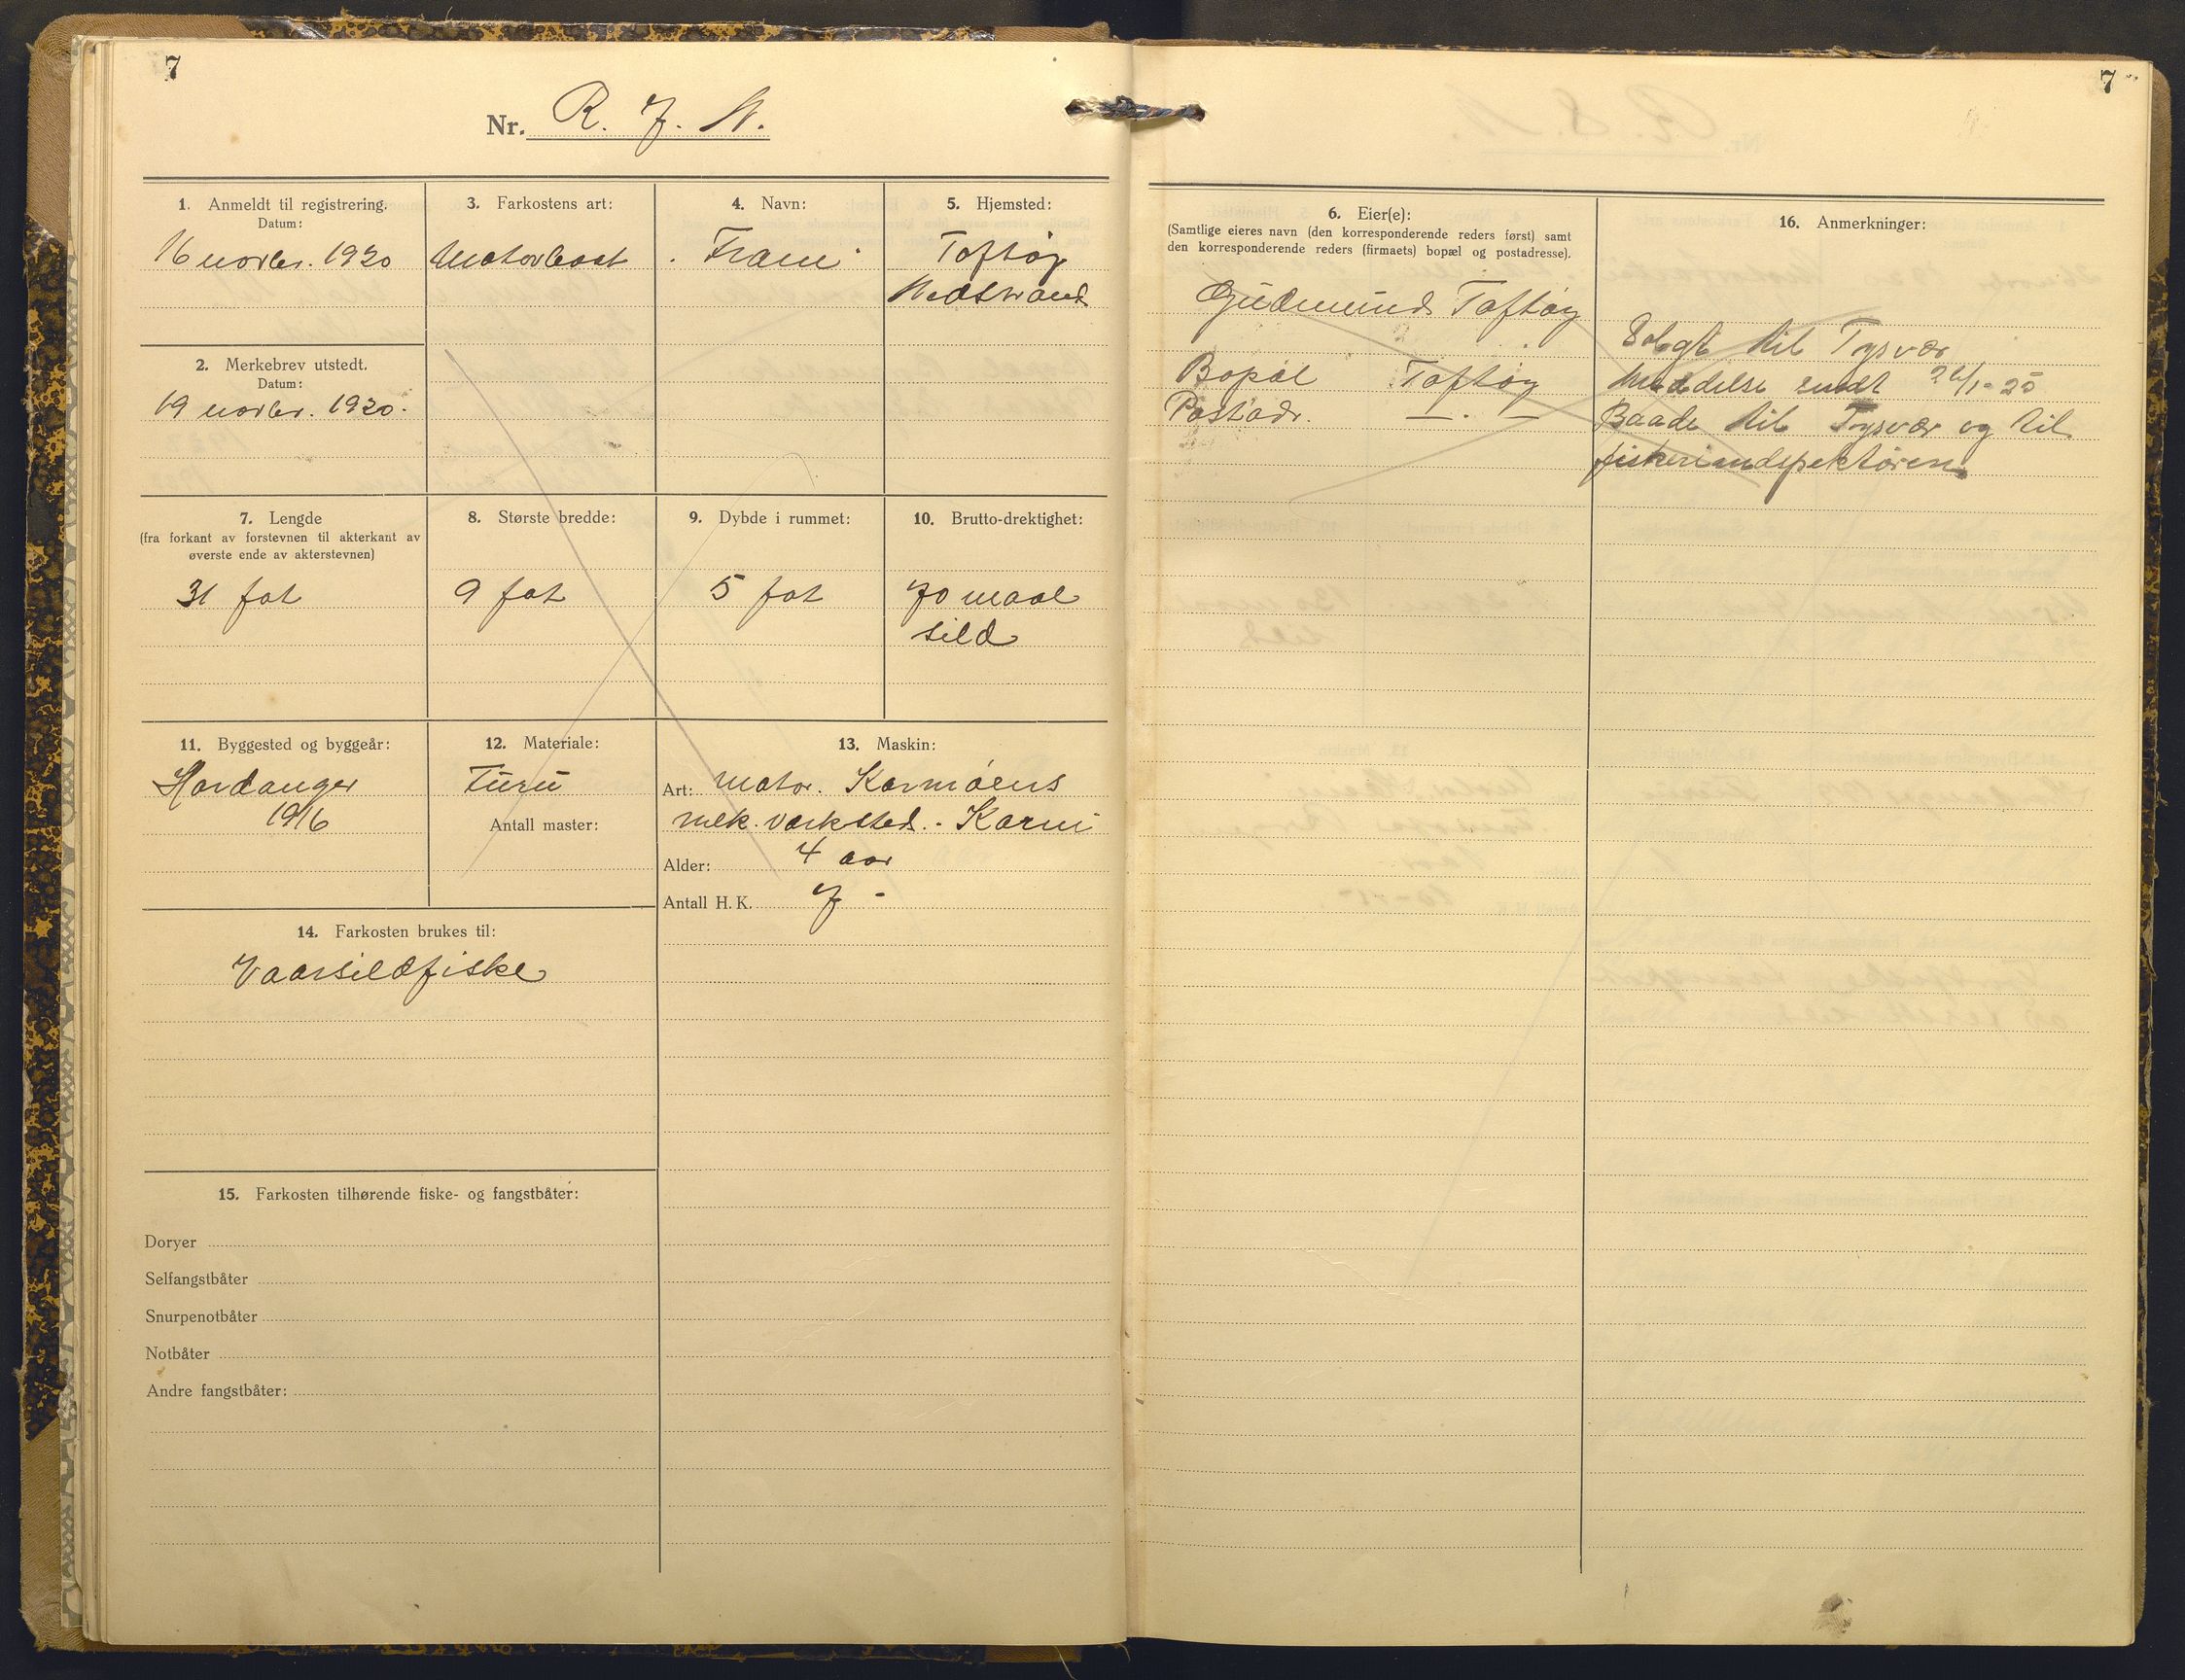 7
Nr. R. 7. N.
1. Anmeldt til registrering.
Datum:
16 novbr. 1920
2. Merkebrev utstedt.
Datum:
19 novbr. 1920.
3. Farkostens art:
Motorbaat
4. Navn:
Fram
5. Hjemsted:
Toftøy
Nedstrand
7. Lengde
(fra forkant av forstevnen til akterkant av
øverste ende av akterstevnen)
31 fot
8. Største bredde:
9 fot
9. Dybde i rummet:
5 fot
10. Brutto-drektighet:
70 maal
sild
11. Byggested og byggeår:
Hardanger
1916
12. Materiale:
Furu
Antall master:
13. Maskin:
Art: Motor. Karmøens
mek. værksted. - Karmi
Alder: 4 aar
Antall H. K. 7 -
14. Farkosten brukes til:
Vaarsildfiske
15. Farkosten tilhørende fiske- og fangstbåter:
Doryer
Selfangstbåter
Snurpenotbåter
Notbåter
Andre fangstbåter:
7
6. Eier(e):
(Samtlige eieres navn (den korresponderende reders først) samt
den korresponderende reders (firmaets) bopæl og postadresse).
Gudmund Toftøy
Bopæl Toftøy
Postadr. — . —
16. Anmerkninger:
Solgt til Tysvær
Meddelse sendt 26/1-25
Baade til Tysvær og til
fiskeriindspektøren